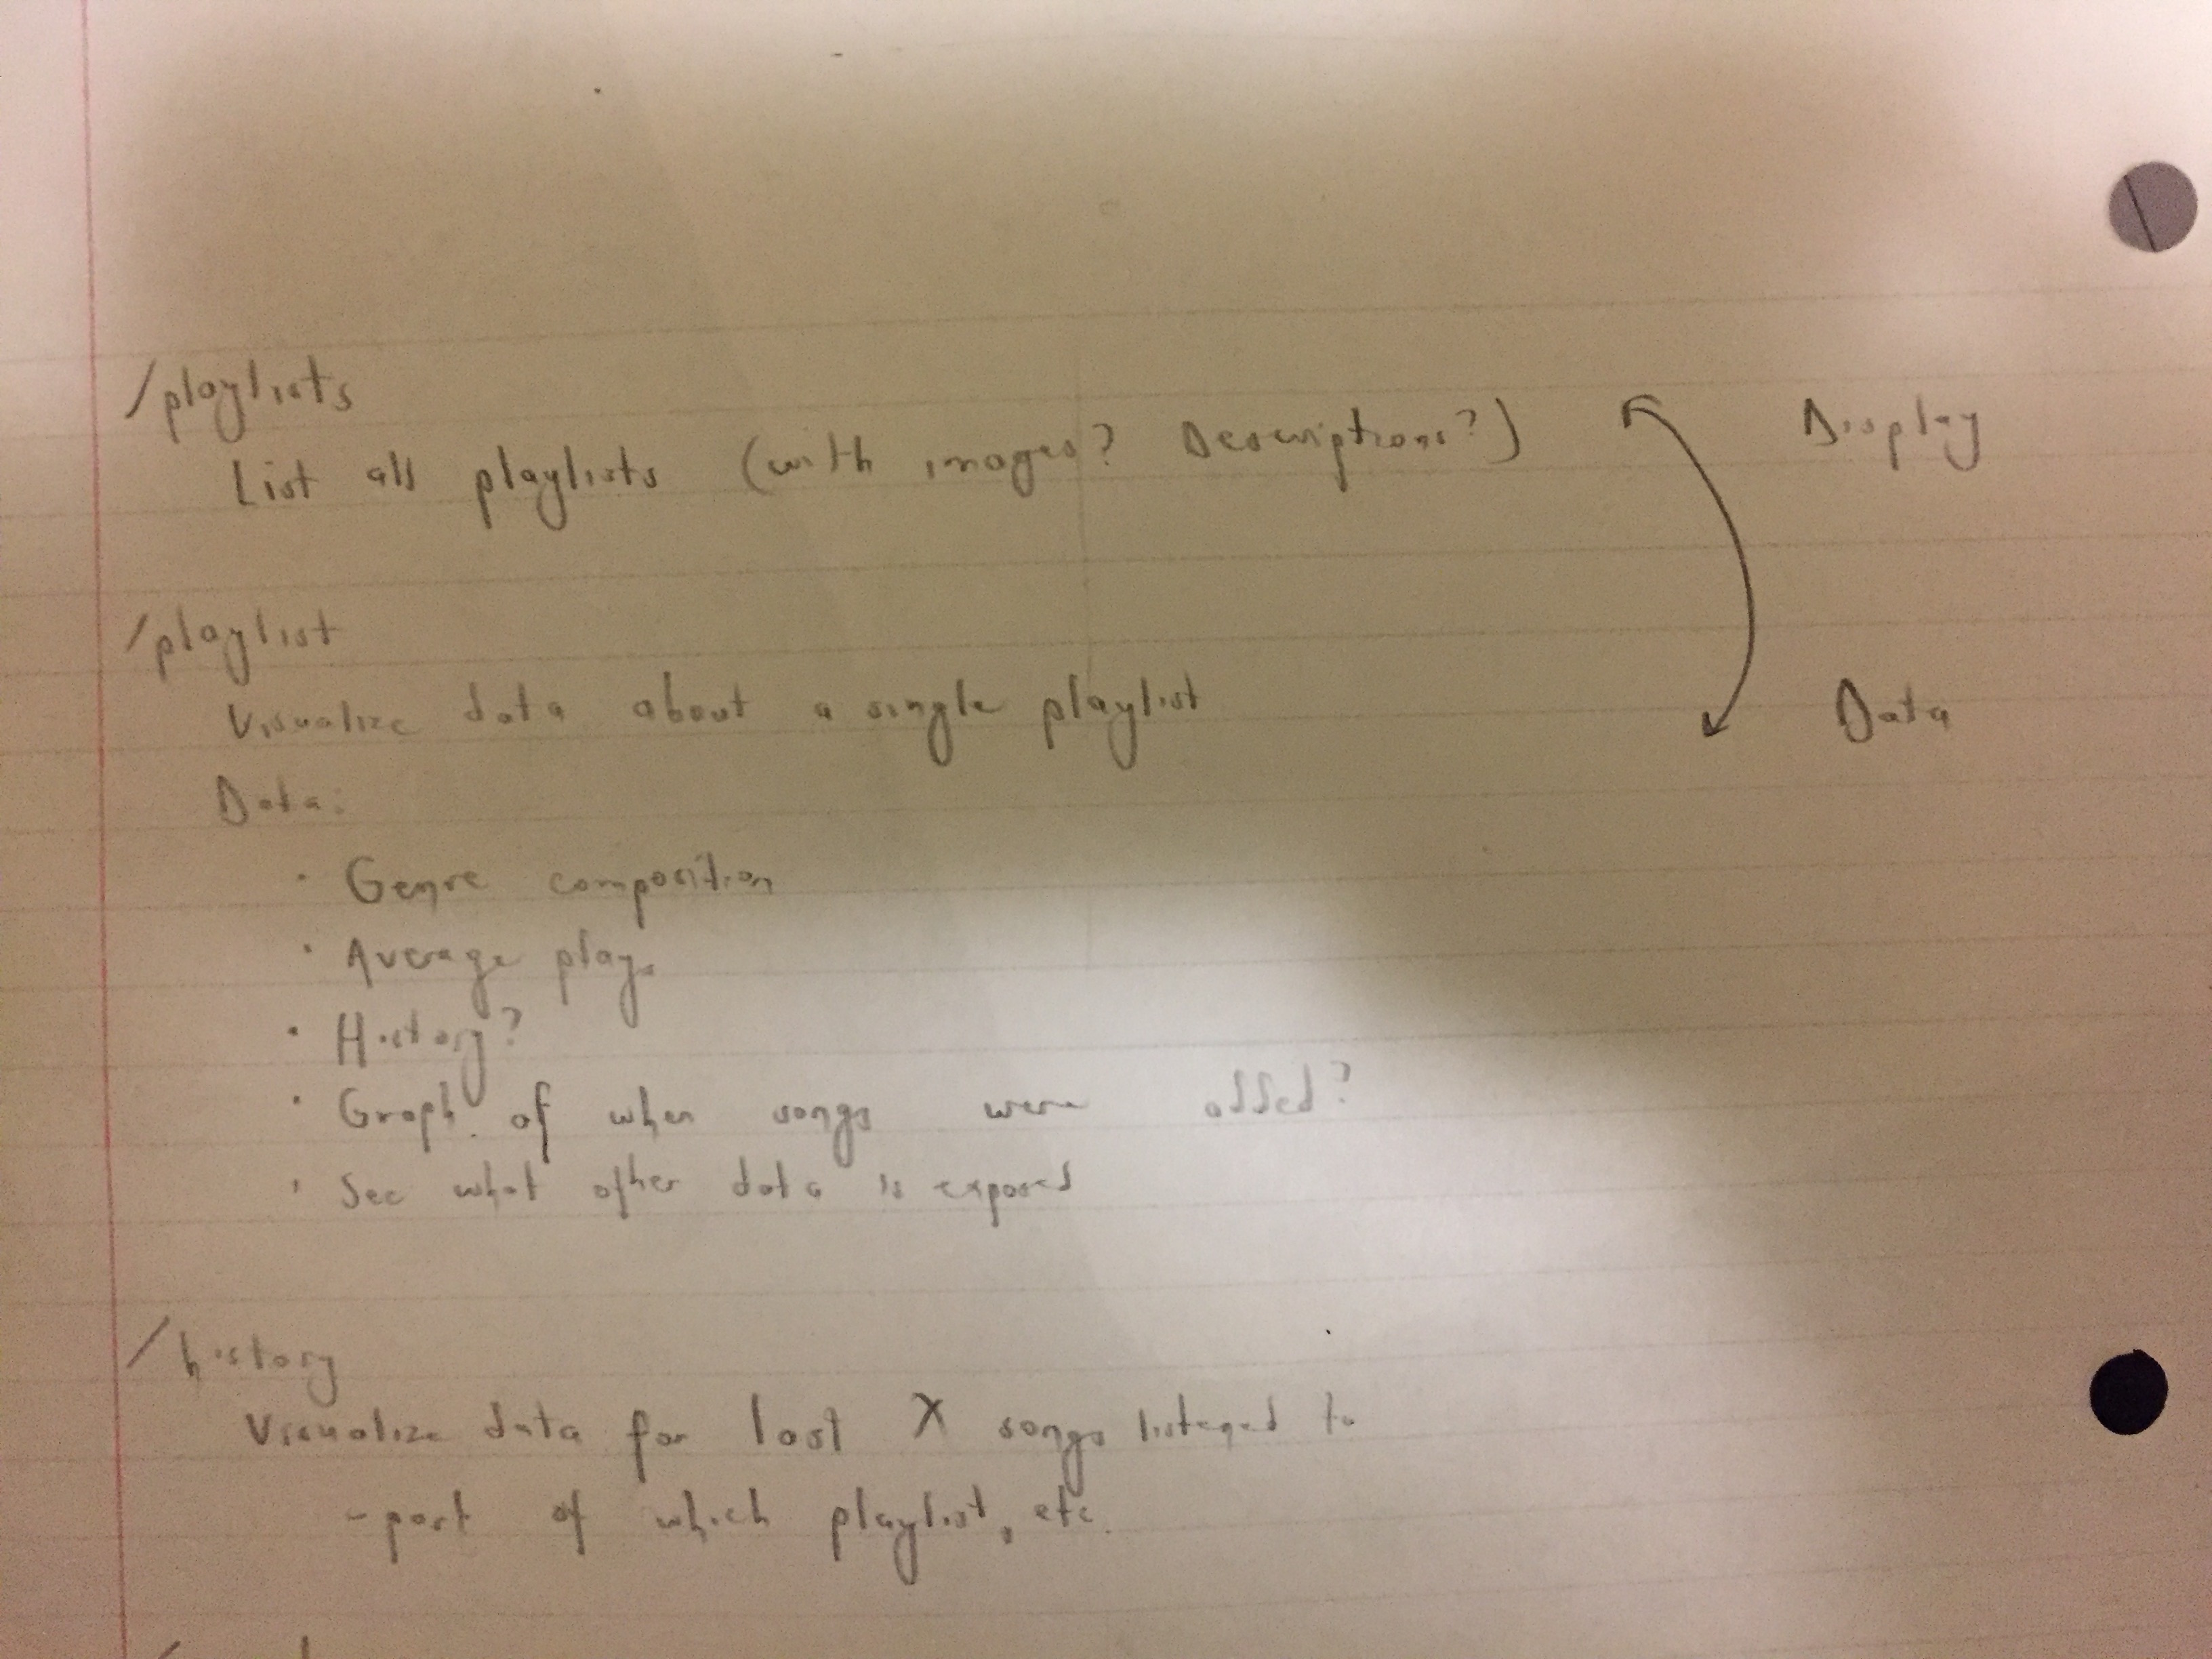 /playlists
List all playlists (with images? Descriptions?) Display
/playlist
Visualize data about a single playlist Data
Data:
· Genre composition
· Average plays
· History?
· Graph of when songs were added?
· See what other data is exposed
/history
Visualize data for last X songs listened to
- part of which playlist, etc.